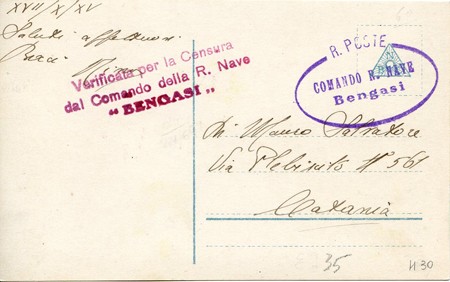 XVII/X/XV
Saluti affettuosi
Baci
Verificata per la Censura
dal Comando della R. Nave
"BENGASI"
R. POSTE
COMANDO R. NAVE
Bengasi
Di Mauro Salvatore
Via Plebiscito N° 561
Catania
35
H 30